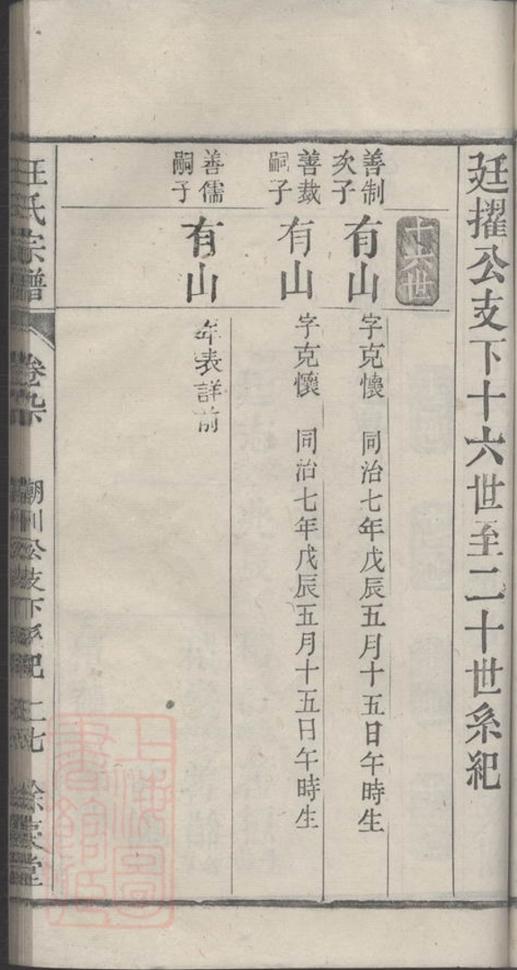 廷擢公支下十六世至二十世系紀
十六世
善制次子
有山
字克懷 同治七年戊辰五月十五日午時生
善裁嗣子
有山
字克懷 同治七年戊辰五月十五日午時生
善儒嗣子
有山
年表詳前
汪氏宗譜
公支下系紀
上海圖書館藏